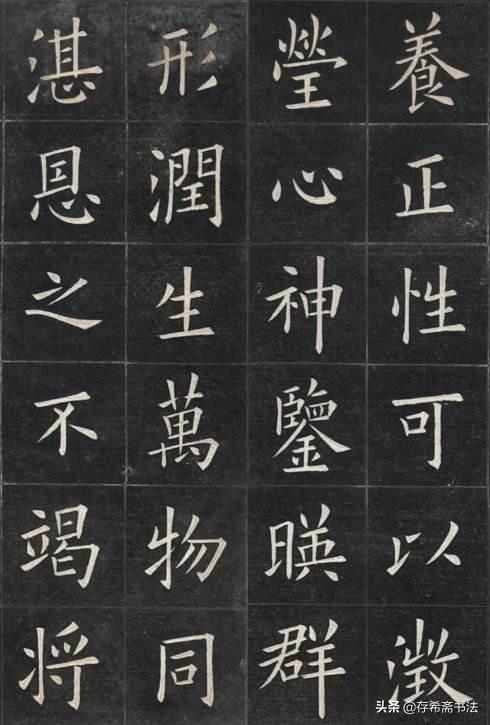 養正性可以澂
瑩心神鑒暎群
形潤生萬物同
湛恩之不竭将
头条 @存希斋书法